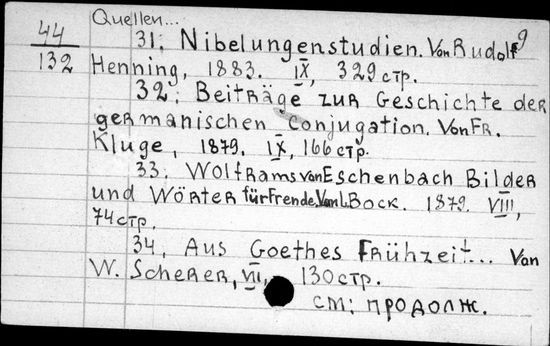 Quellen...
44 31; Nibelungenstudien. Von Rudolf 9
132 Henning, 1883. IX, 329 стр.
32; Beiträge zur Geschichte der
germanischen conjugation. Von Fr.
Kluge, 1879. IX, 166 стр.
33. Wolframs von Eschenbach Bilder
und Wörter für Frende. Von L. Bock. 1879. VIII,
74 стр.
34, Aus Goethes Frühzeit... Von
W. Scherer, VII, 130 стр.
см: продолж.